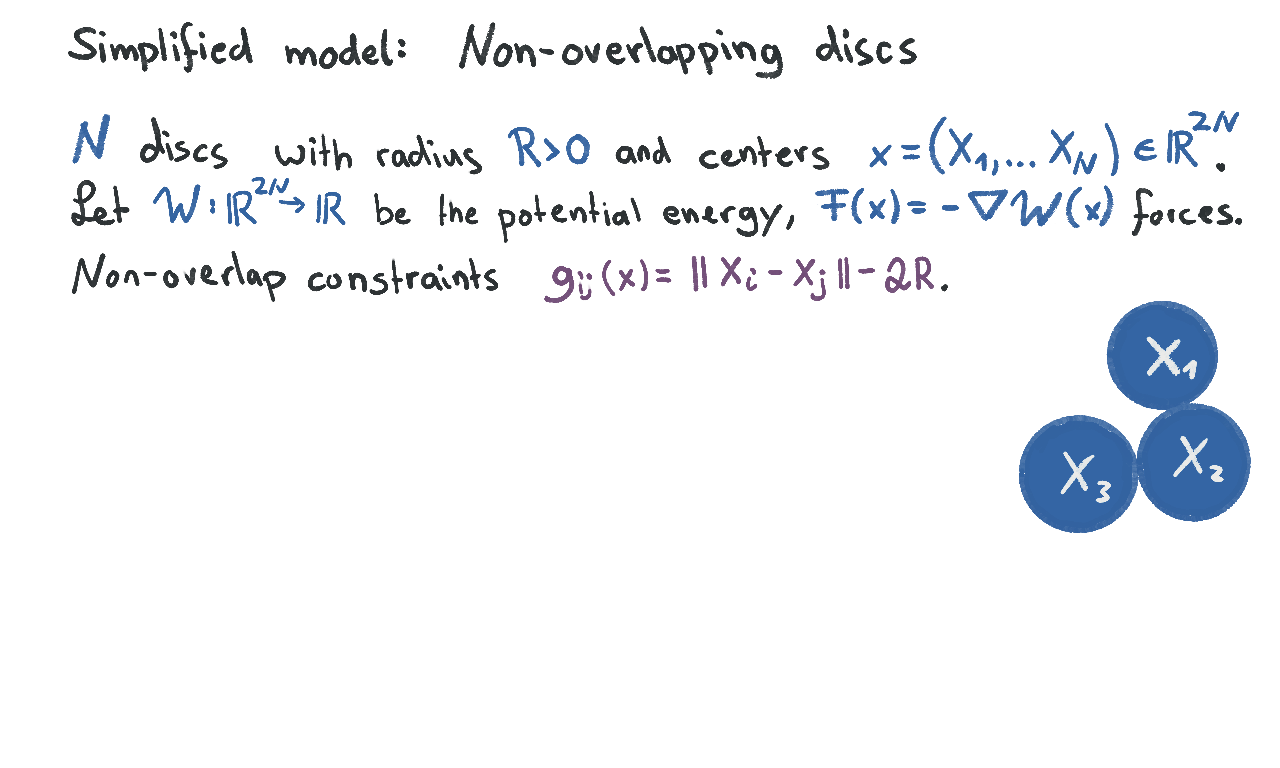 Simplified model: Non-overlapping discs
N discs with radius R>0 and centers x=(X₁,... X_N) ∈ ℝ²ᴺ.
Let W: ℝ²ᴺ→ ℝ be the potential energy, F(x)= -∇W(x) forces.
Non-overlap constraints g_ij(x)= ‖X_i - X_j‖-2R.
X₁
X₂
X₃